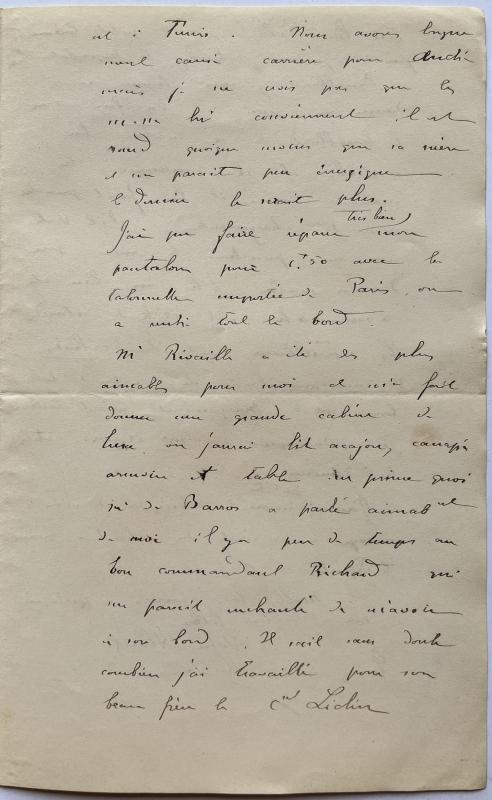 et à Tunis. Nous avons
cause carrière pour André
mais je ne vois pas que les
lui conviennent il est
rond quoique moins que sa mère
et me parait peu énergique
le dernier le serait plus.
J'ai pu faire réparer très bien mon
pantalon pour 1f.50 avec la
importée de Paris, on
a tout le bord.
Mr Rivaille a été des plus
aimables pour moi et m'a fait
donner une grande cabine de
luxe où j'aurai lit acajou, canapé
armoire et table en prime quoi
Mr de Barros a parlé aimabnt
de moi il y a peu de temps au
bon commandant Richard qui
me parait enchanté de m'avoir
à son bord. Il sait sans doute
combien j'ai travaillé pour son
beau frère le Cnel